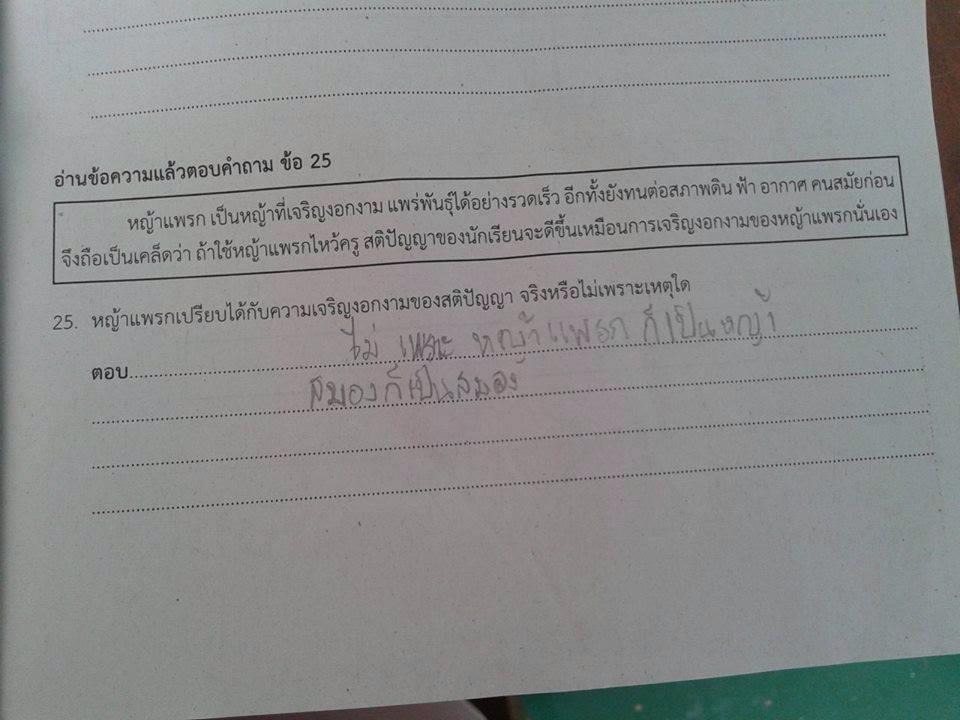 อ่านข้อความแล้วตอบคำถาม ข้อ 25
หญ้าแพรก เป็นหญ้าที่เจริญงอกงาม แพร่พันธุ์ได้อย่างรวดเร็ว อีกทั้งยังทนต่อสภาพดิน ฟ้า อากาศ คนสมัยก่อน
จึงถือเป็นเคล็ดว่า ถ้าใช้หญ้าแพรกไหว้ครู สติปัญญาของนักเรียนจะดีขึ้นเหมือนการเจริญงอกงามของหญ้าแพรกนั่นเอง
25. หญ้าแพรกเปรียบได้กับความเจริญงอกงามของสติปัญญา จริงหรือไม่เพราะเหตุใด
ตอบ ไม่ เพราะ หญ้าแพรก ก็เป็นหญ้า
สมองก็เป็นสมอง